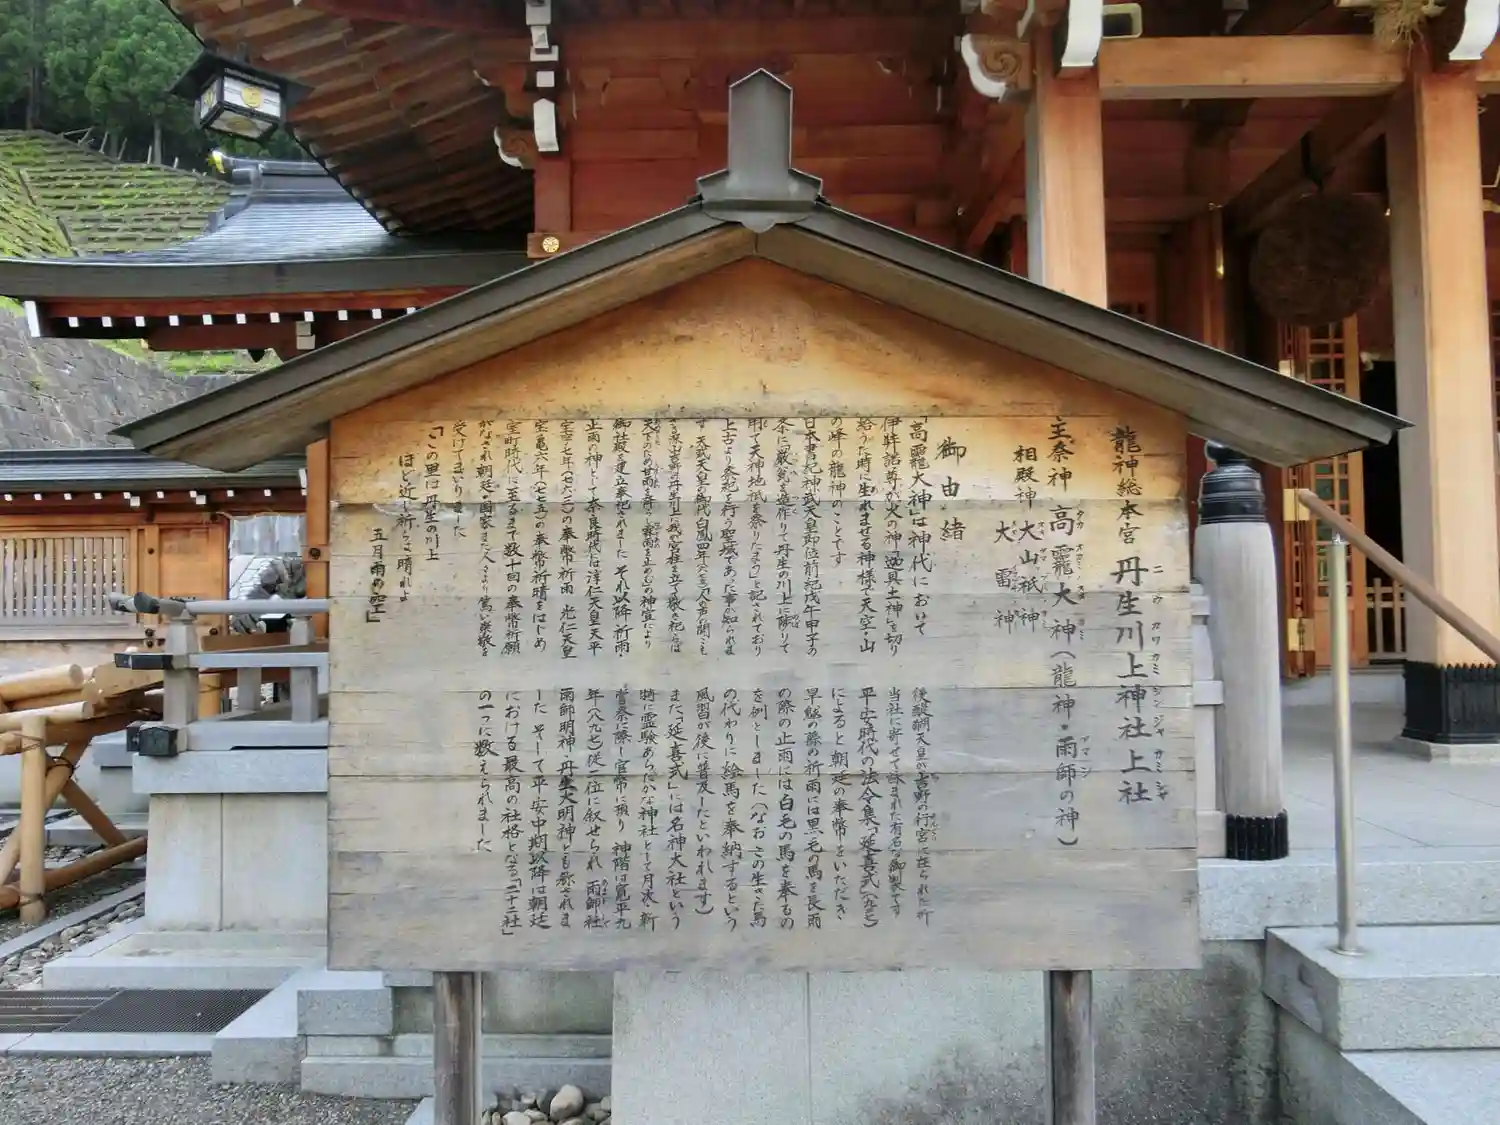 龍神総本宮 丹生川上神社上社
ニウカワカミジンジャカミシャ
主祭神 高龗大神(龍神・雨師の神)
相殿神 大山祇神
大雷神
御由緒
「高龗大神」は神代において
伊弉諾尊が火の神「迦具土神」を切り
給うた時に生れませる神様で天空・山
の峰の龍神のことです
日本書紀神武天皇即位前紀戊午甲子の
条に「厳瓮を造作りて丹生の川上に陟りて
用て天神地祇を祭りたまう」と記されており
上古より祭祀を行う聖域であった事が知られま
す 天武天皇の御代白鳳四年(六七五)「人声の聞こえ
ざる深山吉野丹生川上に我が宮柱を立て敬い祀らば
天下のために甘雨を降らし霖雨を止めむ」の神宣により
御社殿を建立奉祀されました それ以降 祈雨・
止雨の神として奈良時代は淳仁天皇天平
宝字七年(七六三)の奉幣祈雨 光仁天皇
宝亀六年(七七五)の奉幣祈晴をはじめ
室町時代に至るまで数十回の奉幣祈願
がなされ朝廷・国家また人々より篤い崇敬を
受けてまいりました
「この里は丹生の川上
ほど近し祈らば晴れよ
五月雨の空」
後醍醐天皇が吉野の行宮に在られた折
当社に寄せて詠まれた有名な御製です
平安時代の法令集「延喜式」(九二七)
によると朝廷の奉幣をいただき
旱魃の際の祈雨には黒毛の馬を長雨
の際の止雨には白毛の馬を奉るの
を例としました(なおこの生きた馬
の代わりに絵馬を奉納するという
風習が後に普及したといわれます)
また「延喜式」には名神大社という
特に霊験あらたかな神社として月次・新
嘗祭に際し官幣に預り 神階は寛平九
年(八九七)従二位に叙せられ 雨師社
雨師明神・丹生大明神とも称されま
した そして平安中期以降は朝廷
における最高の社格となる「二十二社」
の一つに数えられました